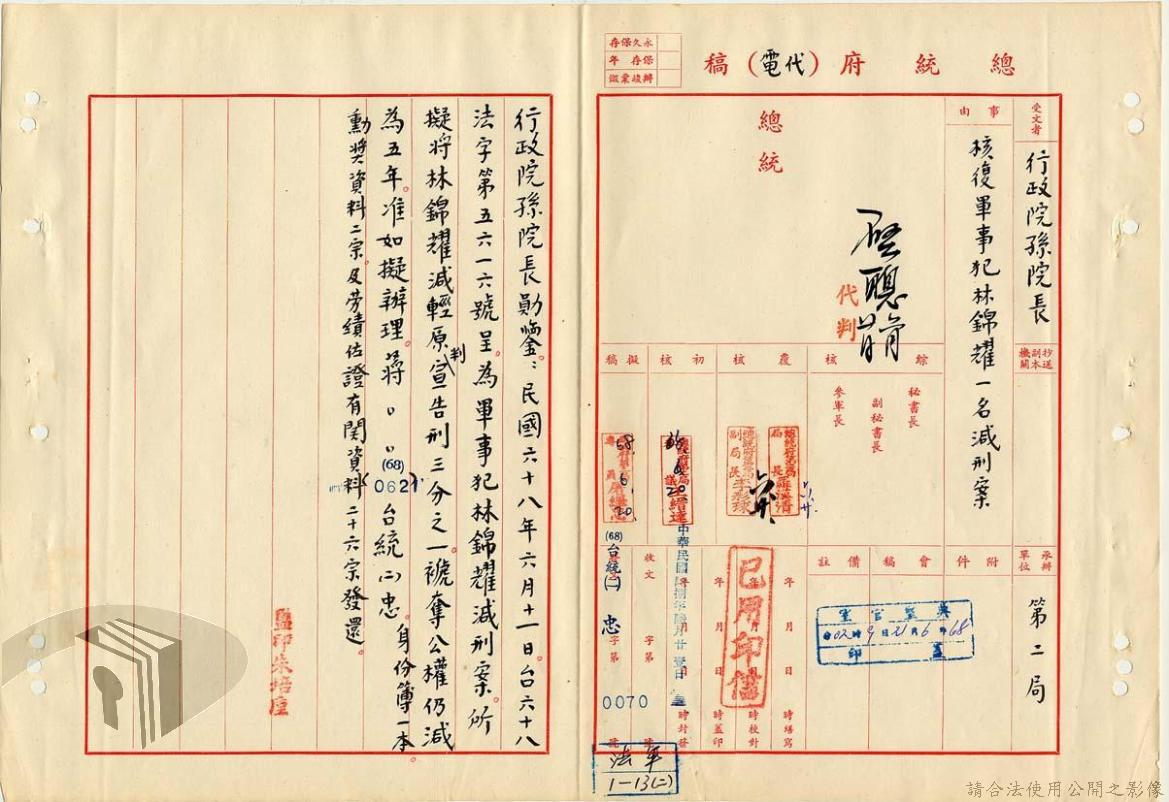 總統府（代電）稿
永久保存
保存 年
辦竣彙銷
受文者
行政院孫院長
抄送副本機關
事由
核復軍事犯林錦耀一名減刑案
總統
代判
綜核
秘書長
副秘書長
參軍長
覆核
初核
擬稿
68.6.20.
承辦單位
第二局
附件
會稿
備註
年 月 日 時繕寫
年 月 日 時校對
年 月 日 時蓋印
已用印信
收文 字第
(68)台統(二)忠 字第 0070 號
行政院孫院長勛鑒：民國六十八年六月十一日。台六十八
法字第五六一六號呈。為軍事犯林錦耀減刑案。所
擬將林錦耀減輕原判宣告刑三分之一。褫奪公權仍減
為五年。准如擬辦理。蔣。。(68)0621台統(二)忠。身份簿一本。
勳獎資料二宗。及勞績佐證有関資料二十六宗發還。
法 軍
1-13(二)
請合法使用公開之影像